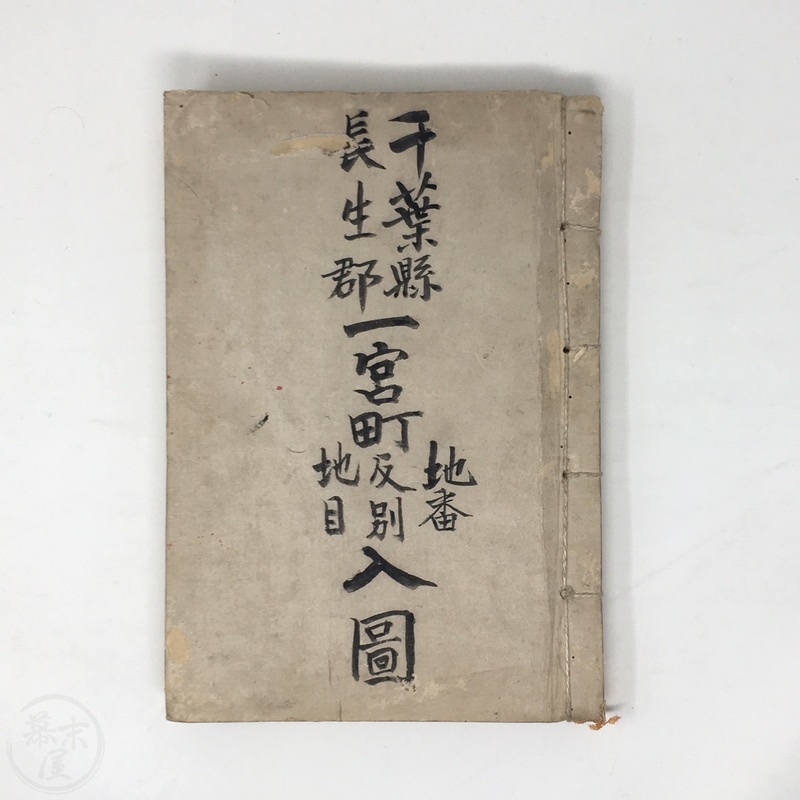 千葉縣
長生郡
一宮町
地番
反別
地目
入圖
幕末屋